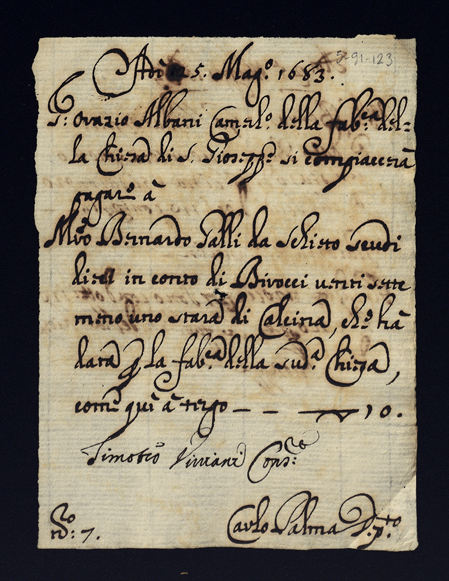 5-91-123
Adì 25. Magº. 1683.
S: Orazio Albani Camerlº. della fabca del=
la Chiesa di S. Gioseppe si compiacerà
pagare à
Mro Bernardo Galli da Schieto scudi
dieci in conto di Birocci venti sette
meno uno stara di Calcina, che hà
data p la fabca della sudª Chiesa,
come qui à tergo — — 10.
Timoteo Viviani Conse
No: 7.
Carlo Palma D:pto